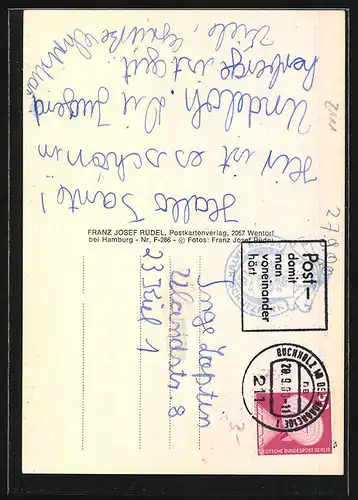 Hallo Tante!
Hir ist es schön in
Undeloh. Die Jugend
herberge ist gut
Viele Grüße Christian
FRANZ JOSEF RÜDEL, Postkartenverlag, 2057 Wentorf
bei Hamburg - Nr. F-286 - © Fotos: Franz Josef Rüdel
Post-
damit
man
voneinander
hört
BUCHHOLZ IN DER NORDHEIDE 1
211
DEUTSCHE BUNDESPOST BERLIN
Inge
8
23 Kiel 1
3-